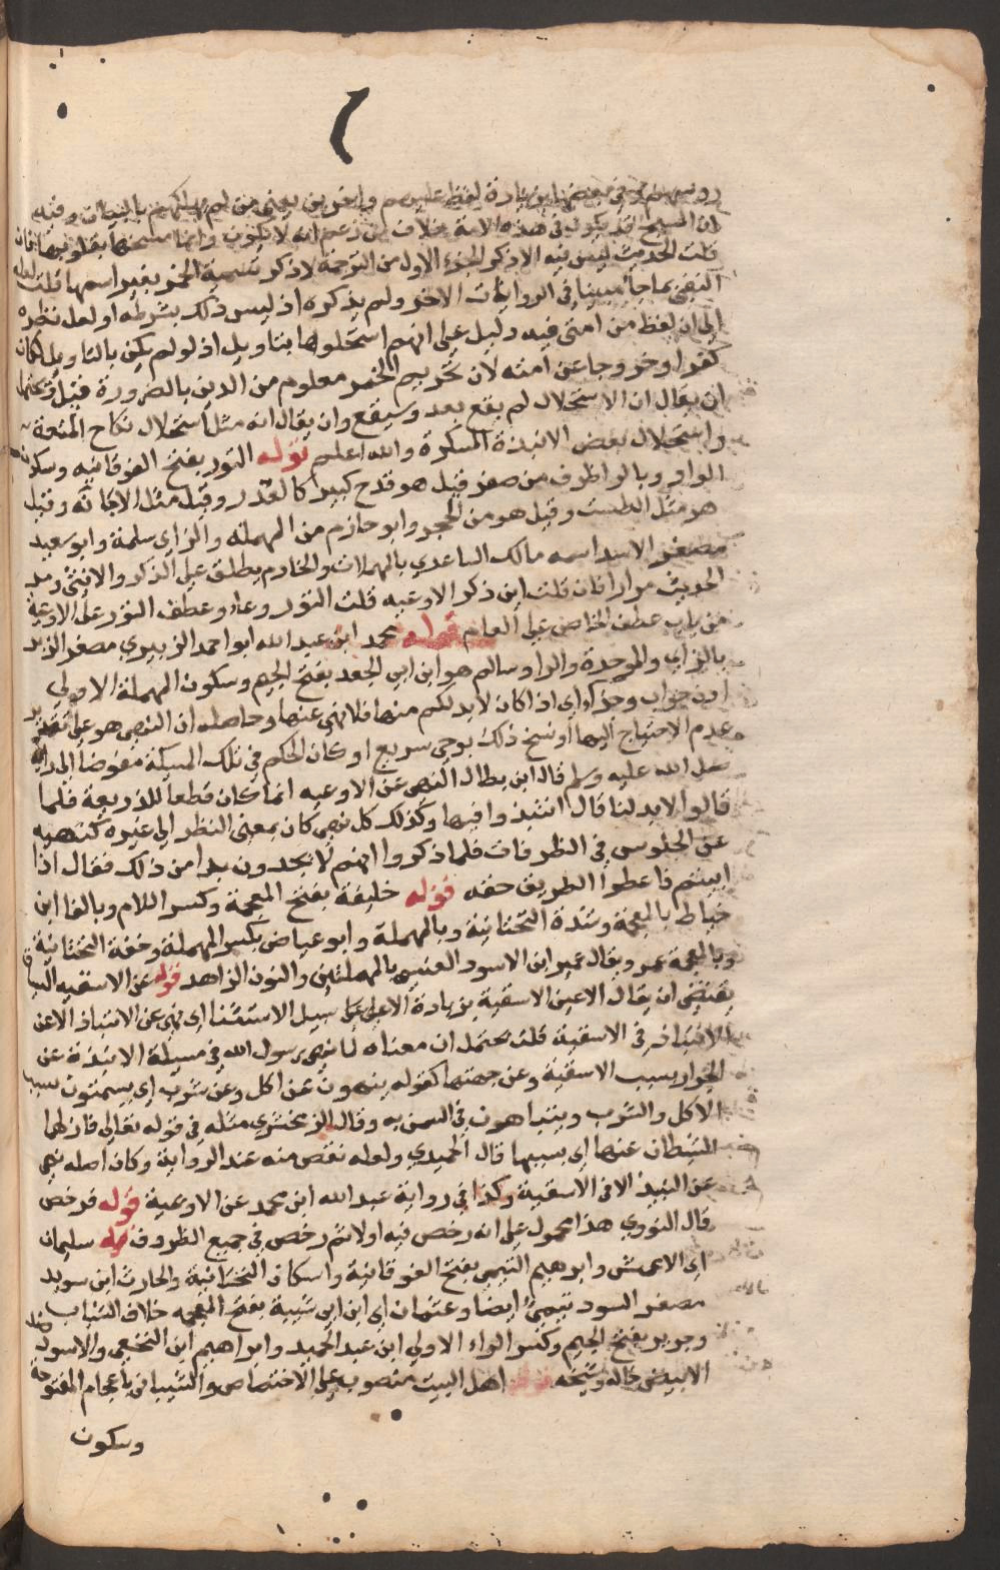 لفظ عليهم وآخرين يعني من لم يهلكهم بالبيات وفيه
ان المسخ قد يكون في هذه الامة خلاف من زعم انه لا يكون وانما مسخها بقلوبها فان
قلت الحديث ليس فيه الا ذكر الجزء الاول من الترجمة لا ذكر تسمية الخمر بغير اسمها قلت لعله
اكتفى بما جا مبينا في الروايات الاخر ولم يذكره اذ ليس ذلك بشرطه او لعل نظره
الى ان لفظ من امتي فيه دليل على انهم استحلوها بتاويل اذ لو لم يكن بالتاويل لكان
كفرا وخروجا عن امته لان تحريم الخمر معلوم من الدين بالضرورة قيل ويحتمل
ان يقال ان الاستحلال لم يقع بعد وسيقع وان يقال انه مثل استحلال نكاح المتعة
واستحلال بعض الانبذة المسكرة والله اعلم قوله التور بفتح الفوقانيه وسكون
الواو وبالرا ظرف من صفر قيل هو قدح كبير كالقدر وقيل مثل الاجانه وقيل
هو مثل الطست وقيل هو من الحجر وابو حازم من المهملة والزاى سلمة وابو سعيد
مصغر الاسد اسمه مالك الساعدي بالمهملات والخادم يطلق على الذكر والانثى ومر
الحديث مرارا فان قلت اين ذكر الاوعيه قلت التور وعاء وعطف التور على الاوعية
من باب عطف الخاص على العام قوله محمد ابن عبد الله ابو احمد الزبيري مصغر الزبر
بالزاى والموحدة والرا وسالم هو ابن ابي الجعد بفتح الجيم وسكون المهملة الاولى
اذن جواب وجزاء اى اذا كان لابد لكم منها فلا نهي عنها وحاصله ان النهي هو على تقدير
عدم الاحتياج اليها او نسخ ذلك بوحي سريع او كان الحكم في تلك المسيلة مفوضا الى رايه
صلى الله عليه وسلم قال ابن بطال النهي عن الاوعيه انما كان قطعا للذريعة فلما
قالوا لابد لنا قال انتبذوا فيها وكذلك كل نهي كان بمعنى النظر الى غيره كنهيه
عن الجلوس في الطرقات فلما ذكروا انهم لا يجدون بدا من ذلك فقال اذا
ابيتم فاعطوا الطريق حقه قوله خليفة بفتح المعجمة وكسر اللام وبالفا ابن
خياط بالمعجمة وشدة التحتانية وبالمهملة وابو عياض بكسر المهملة وخفة التحتانية
وبالمعجمة عمرو ويقال عمير ابن الاسود العنسي بالمهملتين والنون الزاهد قوله عن الاسقيه السياق
يقتضي ان يقال الا عن الاسقية بزيادة الا على سبيل الاستثنا اى نهى عن الانتباذ الا عن
الانتباذ في الاسقية قلت يحتمل ان معناه لما نهى رسول الله في مسيلة الانبذة عن
الجرار بسبب الاسقية وعن جهتها كقوله ينهون عن اكل وعن شرب اى يسمنون بسبب
الاكل والشرب ويتناهون في السمن به وقال الزمخشري مثله في قوله تعالى فازلهما
الشيطان عنها اى بسببها قال الحميدي ولعله نقص منه عند الرواية وكان اصله نهى
عن النبيذ الا في الاسقية وكذا في رواية عبد الله ابن محمد عن الاوعية قوله فرخص
قال النووي هذا محمول على انه رخص فيه اولا ثم رخص في جميع الظروف قوله سليمان
اى الاعمش وابرهيم التيمي بفتح الفوقانية واسكان التحتانية والحارث ابن سويد
مصغر السود تيمي ايضا وعثمان اى ابن ابي شيبة بفتح المعجمه خلاف الشباب
وجرير بفتح الجيم وكسر الراء الاولى ابن عبد الحميد وابراهيم ابن النخعى والاسود ضد
الابيض خاله وشيخه اهل البيت منصوب على الاختصاص والشيباني باعجام المفتوحة
وسكون